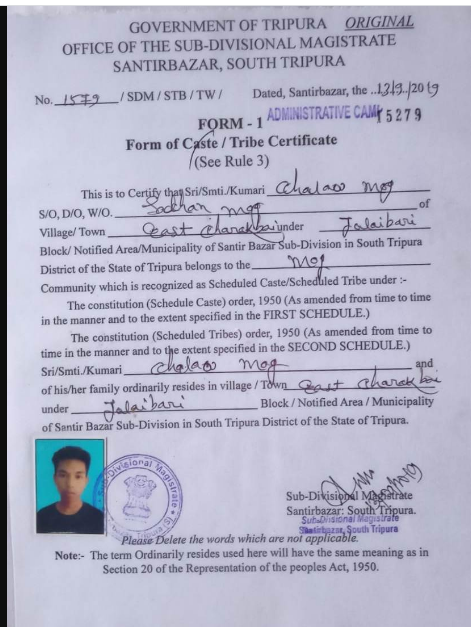 GOVERNMENT OF TRIPURA ORIGINAL
OFFICE OF THE SUB-DIVISIONAL MAGISTRATE
SANTIRBAZAR, SOUTH TRIPURA
No. 1579 / SDM / STB / TW / Dated, Santirbazar, the ..13/3../2019
ADMINISTRATIVE CAMP 15279
FORM - 1
Form of Caste / Tribe Certificate
(See Rule 3)
This is to Certify that Sri/Smti./Kumari Chalao Mog
S/O, D/O, W/O. Sadhan Mog of
Village/ Town East Charakbai under Jolaibari
Block/ Notified Area/Municipality of Santir Bazar Sub-Division in South Tripura
District of the State of Tripura belongs to the Mog
Community which is recognized as Scheduled Caste/Scheduled Tribe under :-
The constitution (Schedule Caste) order, 1950 (As amended from time to time
in the manner and to the extent specified in the FIRST SCHEDULE.)
The constitution (Scheduled Tribes) order, 1950 (As amended from time to
time in the manner and to the extent specified in the SECOND SCHEDULE.)
Sri/Smti./Kumari Chalao Mog and
of his/her family ordinarily resides in village / Town East Charakbai
under Jolaibari Block / Notified Area / Municipality
of Santir Bazar Sub-Division in South Tripura District of the State of Tripura.
Sub-Divisional Magistrate
Sub-Divisional Magistrate
Santirbazar: South Tripura.
Sub-Divisional Magistrate
Santirbazar, South Tripura
Please Delete the words which are not applicable.
Note:- The term Ordinarily resides used here will have the same meaning as in
Section 20 of the Representation of the peoples Act, 1950.